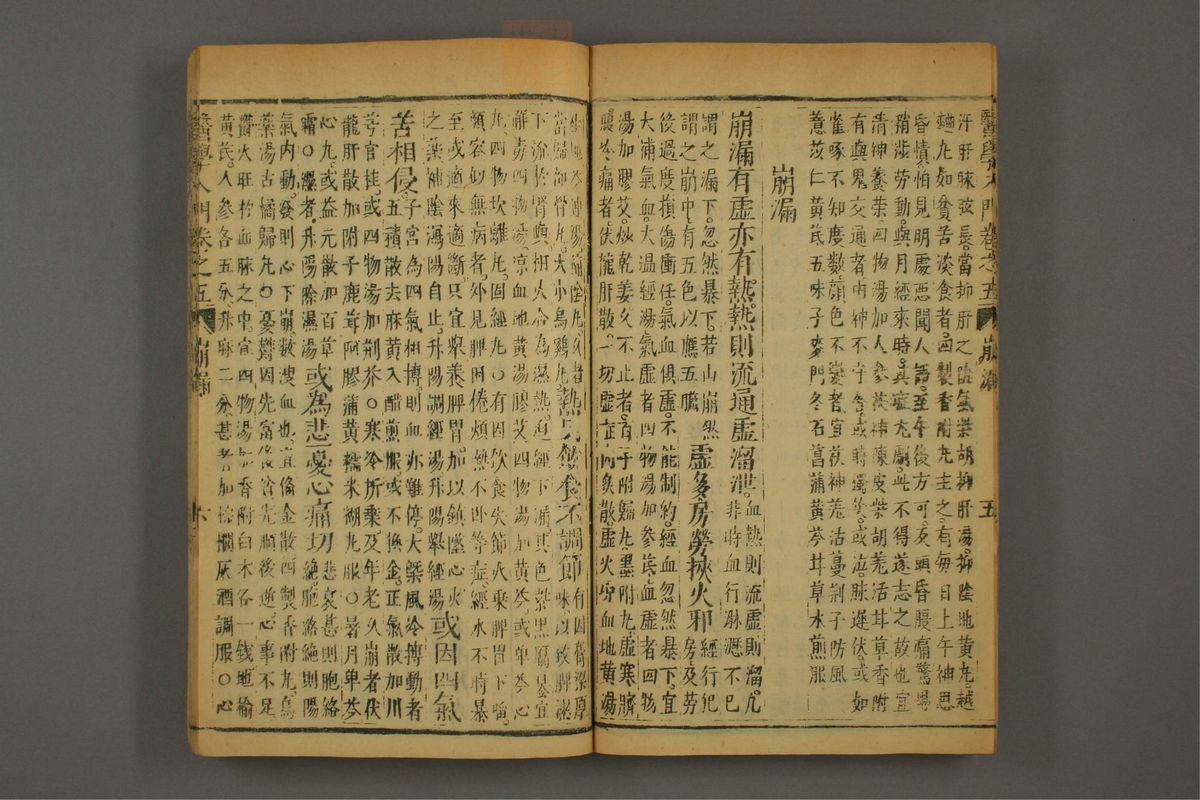 汗肝脉弦長當抑肝之陰氣柴胡抑肝湯抑陰地黃丸越
鞠丸如貧苦淡食者四製香附丸主之有每日上午神思
昏憒怕見明處惡聞人語至午後方可及頭昏腰痛驚惕
稍涉勞動與月經來時其症尤劇此不得遂志之故也宜
清神養榮四物湯加人參茯神陳皮柴胡羌活甘草香附
有與鬼交通者由神不守舍或時獨笑或泣脉遲伏或如
雀啄不知度數顔色不變者宜茯神羌活蔓荆子防風
薏苡仁黃芪五味子麥門冬石菖蒲黃芩甘草水煎服
崩漏
崩漏有虛亦有熱熱則流通虛溜泄血熱則流虛則溜凡
非時血行淋瀝不已
謂之漏下忽然暴下若山崩然
謂之崩中有五色以應五臟
虛多房勞挾火邪經行犯
房及勞
役過度損傷衝任氣血俱虛不能制約經血忽然暴下宜
大補氣血大温經湯氣虛者四物湯加參芪血虛者四物
湯加膠艾炒乾姜久不止者百子附歸丸墨附丸虛寒臍
腹冷痛者伏龍肝散一切虛症內灸散虛火單血地黃湯
當歸抑骨丸大小烏鷄丸熱只飲食不調節有因膏粱厚
味以致脾濕
下流於腎與相火合為濕熱迫經下漏其色紫黑腐臭宜
解毒四物湯凉血地黃湯膠艾四物湯加黃芩或單芩心
丸四物坎離丸固經丸○有因飲食失節火乘脾胃下陷
頰容似無病者外見脾困倦煩熱不卧等症經水不時暴
至或適來適斷只宜舉養脾胃加以鎮墜心火
之藥補陰瀉陽自止升陽調經湯升陽舉經湯或因四氣
苦相侵子宮為四氣相搏則血亦難停大槩風冷搏動者
五積散去麻黃入醋煎服或不換金正氣散加川
芎官桂或四物湯加荆芥○寒冷所乘及年老久崩者伏
龍肝散加附子鹿茸阿膠蒲黃糯米糊丸服○暑月單芩
心丸或益元散加百草
霜○濕者升陽除濕湯或為悲憂心痛切悲哀甚則胞絡
絶胞絡絶則陽
氣內動發則心下崩數溲血也宜備金散四製香附丸烏
藥湯古橘歸丸○憂鬱因先富後貧先順後逆心事不足
鬱火旺於血脉之中宜四物湯加香附白术各一錢地榆
黃芪人參各五分升麻二分甚者加棕櫚灰酒調服○心
醫學入門卷之五
崩漏
五
醫學入門卷之五
崩漏
六